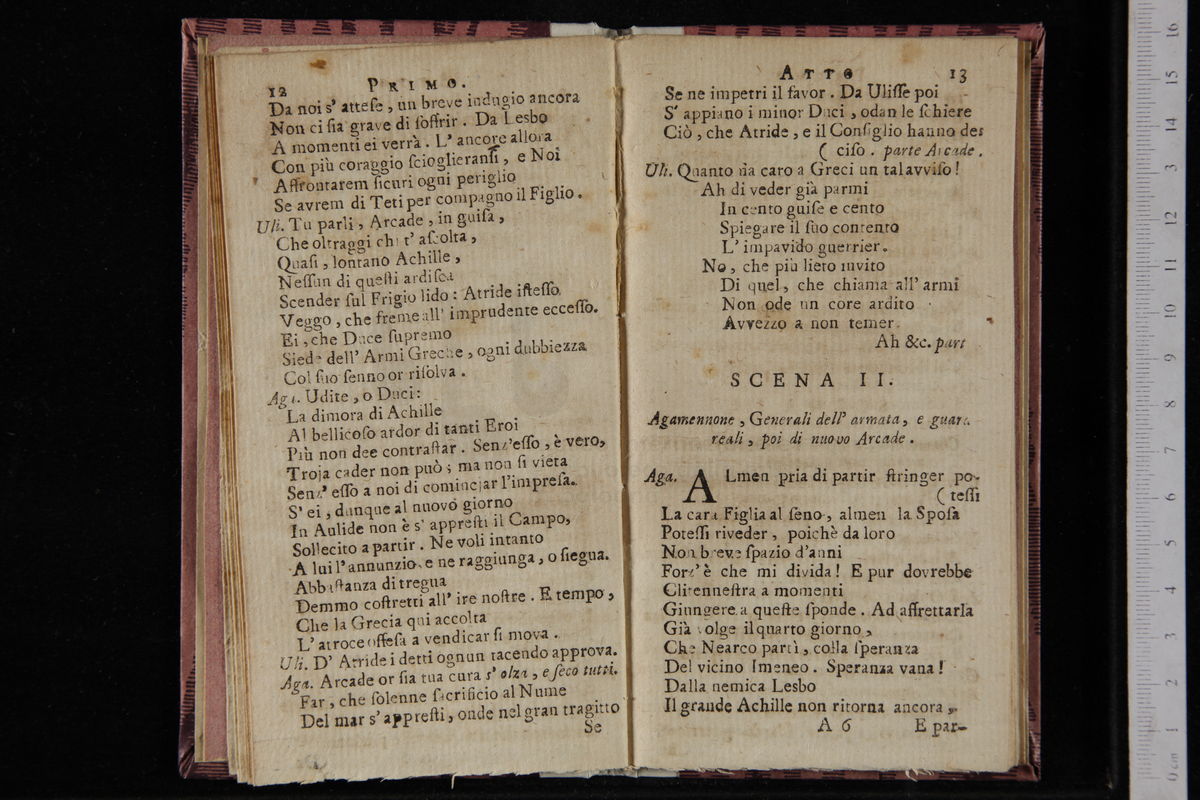 12 PRIMO.
Da noi s' attese, un breve indugio ancora
Non ci sia grave di soffrir. Da Lesbo
A momenti ei verrà. L' ancore allora
Con più coraggio scioglieransi, e Noi
Affrontarem sicuri ogni periglio
Se avrem di Teti per compagno il Figlio.
Uli. Tu parli, Arcade, in guisa,
Che oltraggi chi t' ascolta,
Quasi, lontano Achille,
Nessun di questi ardisca
Scender sul Frigio lido: Atride istesso
Veggo, che freme all' imprudente eccesso.
Ei, che Duce supremo
Siede dell' Armi Greche, ogni dubbiezza
Col suo senno or risolva.
Aga. Udite, o Duci:
La dimora di Achille
Al bellicoso ardor di tanti Eroi
Più non dee contrastar. Senz' esso, è vero,
Troja cader non può; ma non si vieta
Senz' esso a noi di cominciar l'impresa.
S' ei, dunque al nuovo giorno
In Aulide non è s' appresti il Campo,
Sollecito a partir. Ne voli intanto
A lui l'annunzio, e ne raggiunga, o siegua.
Abbastanza di tregua
Demmo costretti all' ire nostre. E tempo,
Che la Grecia qui accolta
L' atroce offesa a vendicar si mova.
Uli. D' Atride i detti ognun tacendo approva.
Aga. Arcade or sia tua cura s' alza, e seco tutti.
Far, che solenne sacrificio al Nume
Del mar s' appresti, onde nel gran tragitto
Se
ATTO 13
Se ne impetri il favor. Da Ulisse poi
S' appiano i minor Duci, odan le schiere
Ciò, che Atride, e il Consiglio hanno de-
( ciso. parte Arcade.
Uli. Quanto sia caro a Greci un tal avviso!
Ah di veder già parmi
In cento guise e cento
Spiegare il suo contento
L' impavido guerrier.
No, che più lieto invito
Di quel, che chiama all' armi
Non ode un core ardito
Avvezzo a non temer.
Ah &c. part
SCENA II.
Agamennone, Generali dell' armata, e guar.
reali, poi di nuovo Arcade.
Aga. ALmen pria di partir stringer po-
( tessi
La cara Figlia al seno, almen la Sposa
Potessi riveder, poichè da loro
Non breve spazio d'anni
Forz' è che mi divida! E pur dovrebbe
Clitennestra a momenti
Giungere a queste sponde. Ad affrettarla
Già volge il quarto giorno,
Che Nearco partì, colla speranza
Del vicino Imeneo. Speranza vana!
Dalla nemica Lesbo
Il grande Achille non ritorna ancora,
A 6 E par-